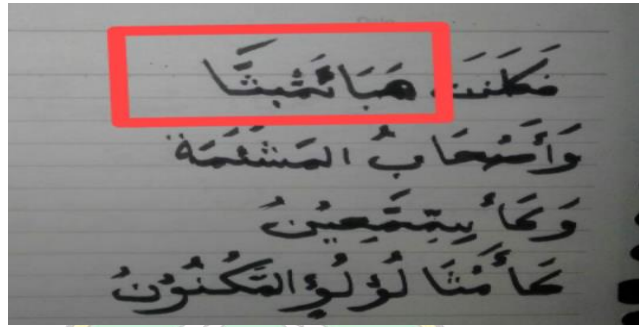 فَكَانَت هَبَائَمُّبَثَّا
وَأَصْحَابُ المَشْئَمَة
وَكَأسِمِّمَّعِيْنُ
كَأَمْثَا لُؤلُؤِالمَّكْنُوْنُ